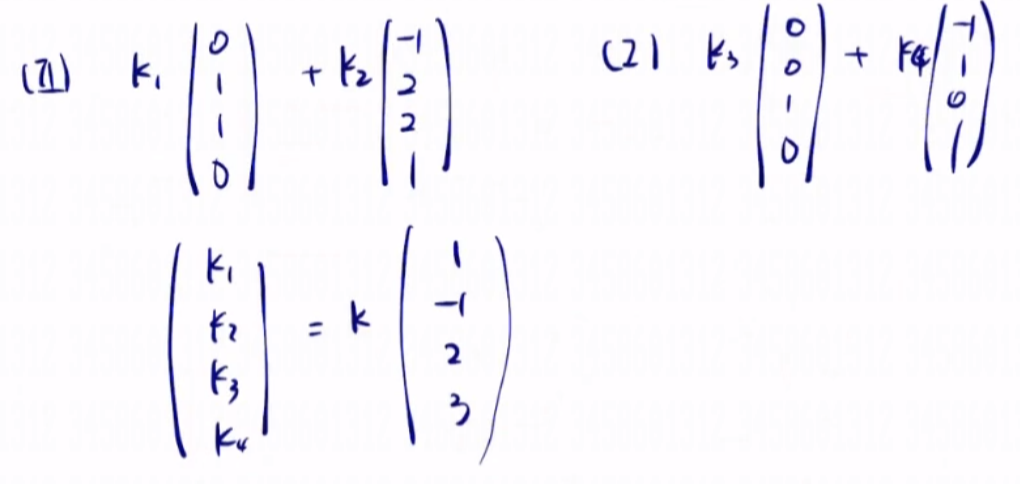 (1) k₁ (0 1 1 0) + k₂ (-1 2 2 1) (2) k₃ (0 0 1 0) + k₄ (-1 1 0 1)
(k₁ k₂ k₃ k₄) = k (1 -1 2 3)